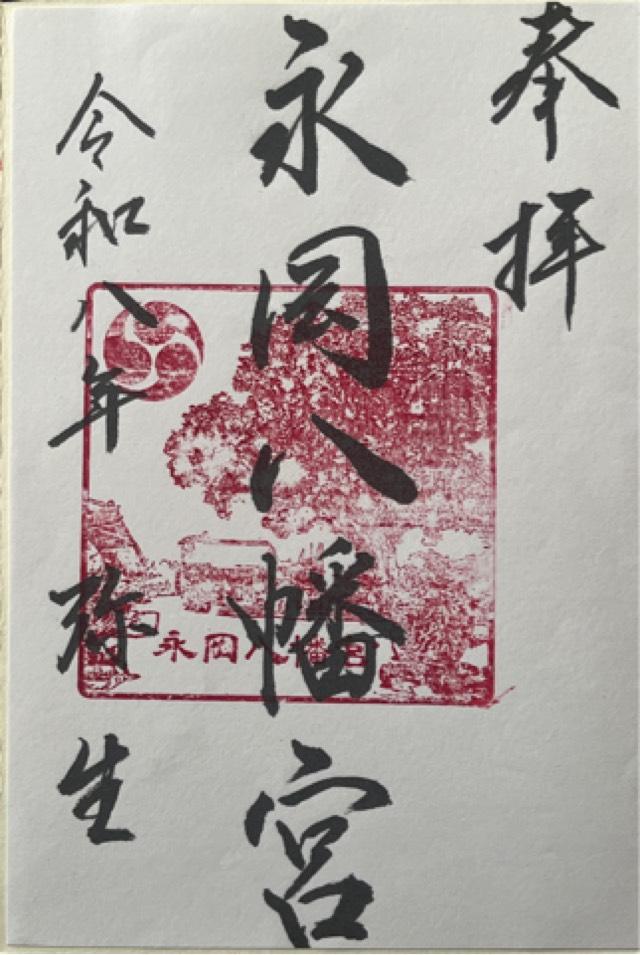 奉拝
永岡八幡宮
令和八年 弥生
永岡八幡宮